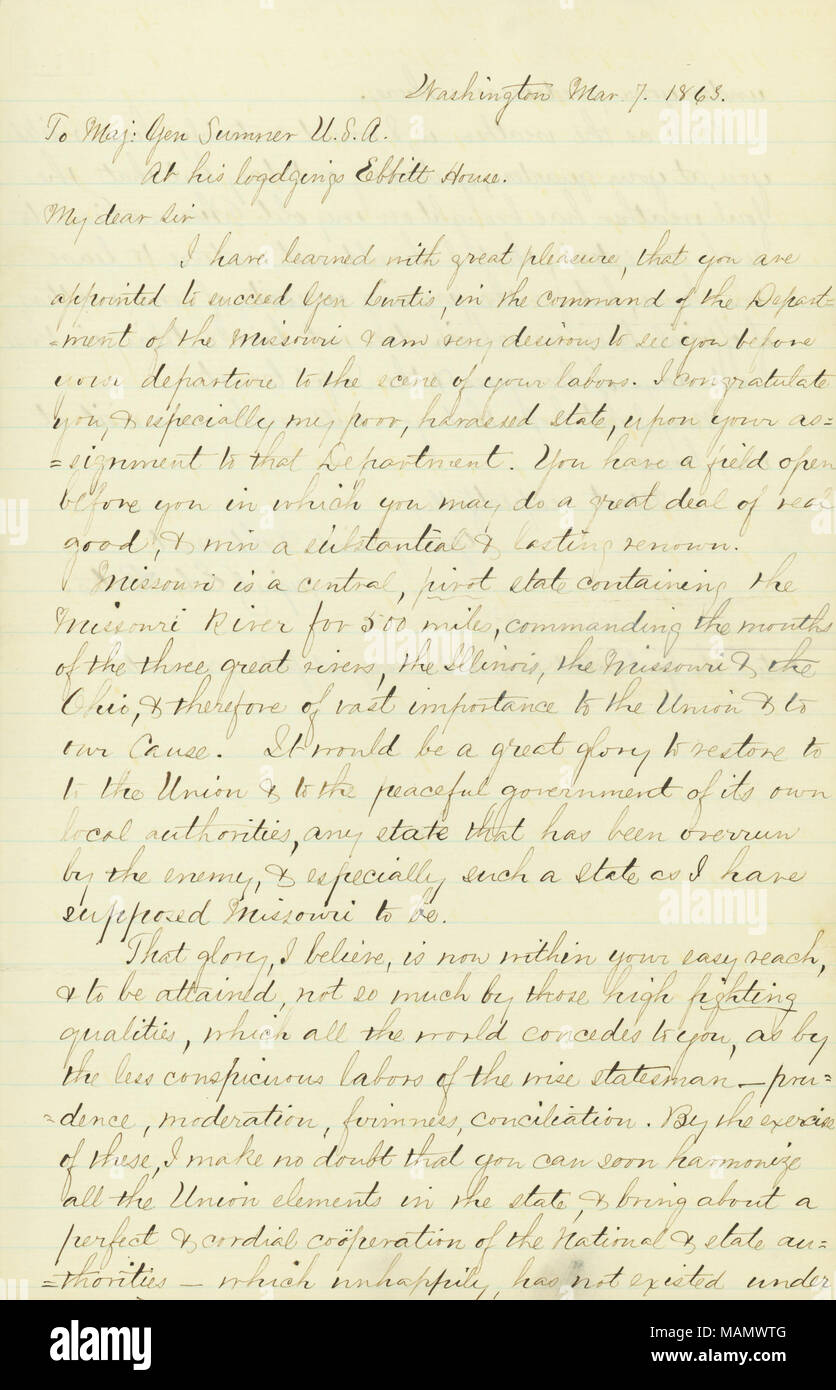 Washington Mar. 7. 1863.
To Maj: Gen Sumner U.S.A.
At his logdgings Ebbitt House.
My dear Sir
I have learned with great pleasure, that you are
appointed to succeed Gen Curtis, in the command of the Depart=
=ment of the Missouri & am very desirous to see you before
your departure to the scene of your labors. I congratulate
you, & especially my poor, harassed state, upon your as=
=signment to that Department. You have a field open
before you in which you may do a great deal of real
good, & win a substantial & lasting renown.
Missouri is a central, pivot state containing the
Missouri River for 500 miles, commanding the mouths
of the three great rivers, the Illinois, the Missouri & the
Ohio, & therefore of vast importance to the Union & to
our Cause. It would be a great glory to restore to
to the Union & to the peaceful government of its own
local authorities, any state that has been overrun
by the enemy, & especially such a state as I have
supposed Missouri to be.
That glory, I believe, is now within your easy reach,
& to be attained, not so much by those high fighting
qualities, which all the world concedes to you, as by
the less conspicuous labors of the wise statesman — pru=
=dence, moderation, firmness, conciliation. By the exercise
of these, I make no doubt that you can soon harmonize
all the Union elements in the state, & bring about a
perfect & cordial coöperation of the National & state au=
=thorities — which unhappily, has not existed under
alamy
Image ID: MAMWTG
www.alamy.com